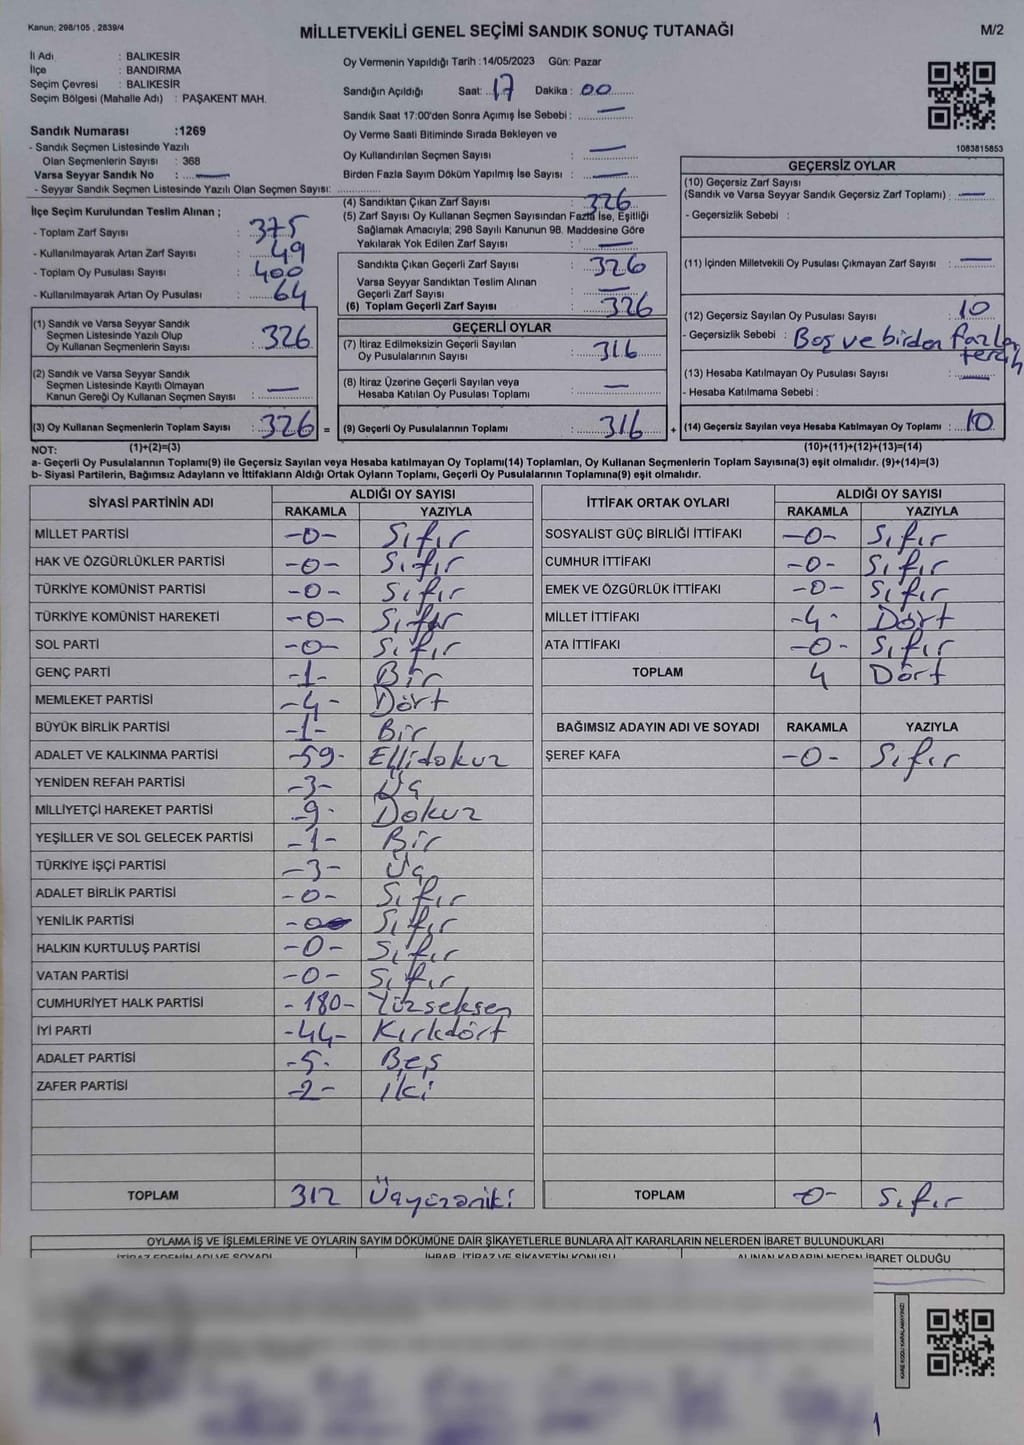 Kanun; 298/105 , 2839/4
MİLLETVEKİLİ GENEL SEÇİMİ SANDIK SONUÇ TUTANAĞI
M/2
İl Adı : BALIKESİR
İlçe : BANDIRMA
Seçim Çevresi : BALIKESİR
Seçim Bölgesi (Mahalle Adı) : PAŞAKENT MAH.
Sandık Numarası :1269
- Sandık Seçmen Listesinde Yazılı
Olan Seçmenlerin Sayısı : 368
Varsa Seyyar Sandık No : —
- Seyyar Sandık Seçmen Listesinde Yazılı Olan Seçmen Sayısı:
Oy Vermenin Yapıldığı Tarih :14/05/2023 Gün: Pazar
Sandığın Açıldığı Saat: 17 Dakika : 00
Sandık Saat 17:00'den Sonra Açımış İse Sebebi : —
Oy Verme Saati Bitiminde Sırada Bekleyen ve
Oy Kullandırılan Seçmen Sayısı : —
Birden Fazla Sayım Döküm Yapılmış İse Sayısı : —
1083815853
İlçe Seçim Kurulundan Teslim Alınan ;
- Toplam Zarf Sayısı : 375
- Kullanılmayarak Artan Zarf Sayısı : 49
- Toplam Oy Pusulası Sayısı : 400
- Kullanılmayarak Artan Oy Pusulası : 64
(1) Sandık ve Varsa Seyyar Sandık
Seçmen Listesinde Yazılı Olup
Oy Kullanan Seçmenlerin Sayısı : 326
(2) Sandık ve Varsa Seyyar Sandık
Seçmen Listesinde Kayıtlı Olmayan
Kanun Gereği Oy Kullanan Seçmen Sayısı : —
(3) Oy Kullanan Seçmenlerin Toplam Sayısı : 326 =
(4) Sandıktan Çıkan Zarf Sayısı : 326
(5) Zarf Sayısı Oy Kullanan Seçmen Sayısından Fazla İse, Eşitliği
Sağlamak Amacıyla; 298 Sayılı Kanunun 98. Maddesine Göre
Yakılarak Yok Edilen Zarf Sayısı : —
Sandıkta Çıkan Geçerli Zarf Sayısı : 326
Varsa Seyyar Sandıktan Teslim Alınan
Geçerli Zarf Sayısı : —
(6) Toplam Geçerli Zarf Sayısı : 326
GEÇERLİ OYLAR
(7) İtiraz Edilmeksizin Geçerli Sayılan
Oy Pusulalarının Sayısı : 316
(8) İtiraz Üzerine Geçerli Sayılan veya
Hesaba Katılan Oy Pusulası Toplamı : —
(9) Geçerli Oy Pusulalarının Toplamı : 316 +
GEÇERSİZ OYLAR
(10) Geçersiz Zarf Sayısı
(Sandık ve Varsa Seyyar Sandık Geçersiz Zarf Toplamı) : —
- Geçersizlik Sebebi :
(11) İçinden Milletvekili Oy Pusulası Çıkmayan Zarf Sayısı : —
(12) Geçersiz Sayılan Oy Pusulası Sayısı : 10
- Geçersizlik Sebebi : Boş ve birden fazla
tercih
(13) Hesaba Katılmayan Oy Pusulası Sayısı : —
- Hesaba Katılmama Sebebi :
(14) Geçersiz Sayılan veya Hesaba Katılmayan Oy Toplamı : 10
NOT: (1)+(2)=(3) (10)+(11)+(12)+(13)=(14)
a- Geçerli Oy Pusulalarının Toplamı(9) ile Geçersiz Sayılan veya Hesaba katılmayan Oy Toplamı(14) Toplamları, Oy Kullanan Seçmenlerin Toplam Sayısına(3) eşit olmalıdır. (9)+(14)=(3)
b- Siyasi Partilerin, Bağımsız Adayların ve İttifakların Aldığı Ortak Oyların Toplamı, Geçerli Oy Pusulalarının Toplamına(9) eşit olmalıdır.
SİYASİ PARTİNİN ADI ALDIĞI OY SAYISI
RAKAMLA YAZIYLA
MİLLET PARTİSİ -0- Sıfır
HAK VE ÖZGÜRLÜKLER PARTİSİ -0- Sıfır
TÜRKİYE KOMÜNİST PARTİSİ -0- Sıfır
TÜRKİYE KOMÜNİST HAREKETİ -0- Sıfır
SOL PARTİ -0- Sıfır
GENÇ PARTİ -1- Bir
MEMLEKET PARTİSİ -4- Dört
BÜYÜK BİRLİK PARTİSİ -1- Bir
ADALET VE KALKINMA PARTİSİ -59- Ellidokuz
YENİDEN REFAH PARTİSİ -3- Üç
MİLLİYETÇİ HAREKET PARTİSİ -9- Dokuz
YEŞİLLER VE SOL GELECEK PARTİSİ -1- Bir
TÜRKİYE İŞÇİ PARTİSİ -3- Üç
ADALET BİRLİK PARTİSİ -0- Sıfır
YENİLİK PARTİSİ -0- Sıfır
HALKIN KURTULUŞ PARTİSİ -0- Sıfır
VATAN PARTİSİ -0- Sıfır
CUMHURİYET HALK PARTİSİ -180- Yüzseksen
İYİ PARTİ -44- Kırkdört
ADALET PARTİSİ -5- Beş
ZAFER PARTİSİ -2- İki
TOPLAM 312 Üçyüzoniki
İTTİFAK ORTAK OYLARI ALDIĞI OY SAYISI
RAKAMLA YAZIYLA
SOSYALİST GÜÇ BİRLİĞİ İTTİFAKI -0- Sıfır
CUMHUR İTTİFAKI -0- Sıfır
EMEK VE ÖZGÜRLÜK İTTİFAKI -0- Sıfır
MİLLET İTTİFAKI -4- Dört
ATA İTTİFAKI -0- Sıfır
TOPLAM 4 Dört
BAĞIMSIZ ADAYIN ADI VE SOYADI RAKAMLA YAZIYLA
ŞEREF KAFA -0- Sıfır
TOPLAM -0- Sıfır
OYLAMA İŞ VE İŞLEMLERİNE VE OYLARIN SAYIM DÖKÜMÜNE DAİR ŞİKAYETLERLE BUNLARA AİT KARARLARIN NELERDEN İBARET BULUNDUKLARI
İTİRAZ EDENİN ADI VE SOYADI İHBAR, İTİRAZ VE ŞİKAYETİN KONUSU ALINAN KARARIN NEDEN İBARET OLDUĞU
KARE KODU KARALAMAYINIZ!